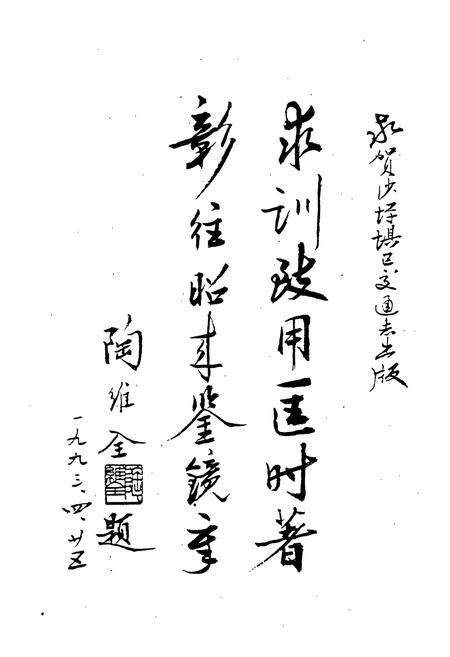 敬贺沙坪坝区交通志出版
求训致用匡时著
彰往昭来鉴镜章
陶维全题
一九九三、四、廿五